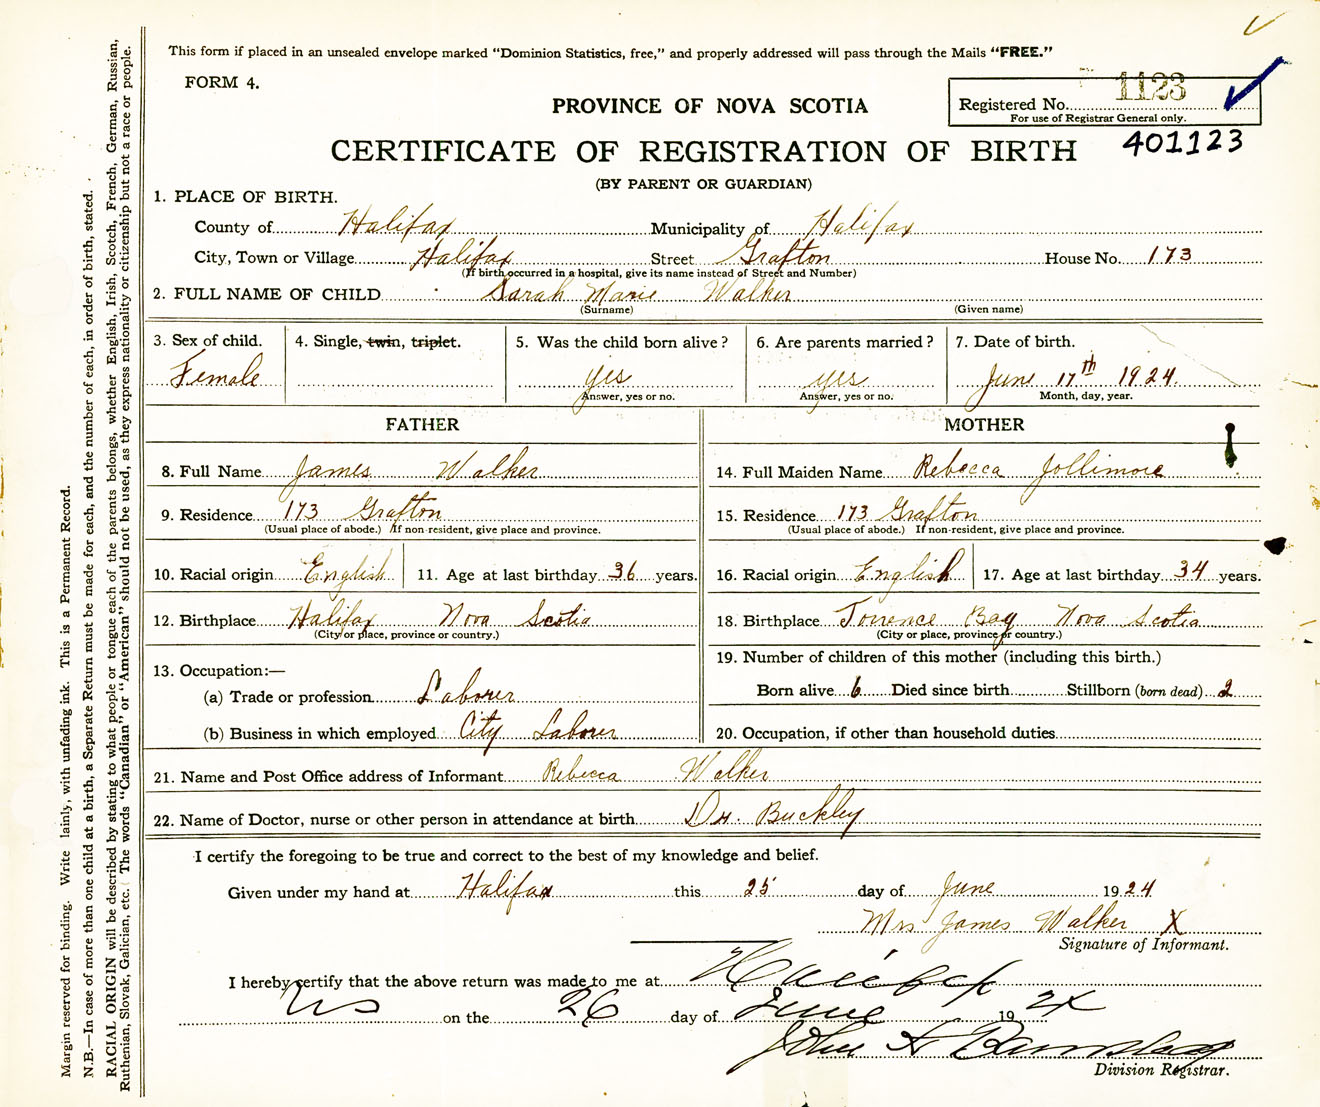 This form if placed in an unsealed envelope marked "Dominion Statistics, free," and properly addressed will pass through the Mails "FREE."
FORM 4.
PROVINCE OF NOVA SCOTIA
Registered No. 1123
For use of Registrar General only.
401123
CERTIFICATE OF REGISTRATION OF BIRTH
(BY PARENT OR GUARDIAN)
1. PLACE OF BIRTH.
County of Halifax Municipality of Halifax
City, Town or Village Halifax Street Grafton House No. 173
(If birth occurred in a hospital, give its name instead of Street and Number)
2. FULL NAME OF CHILD Sarah Marie Walker
(Surname) (Given name)
3. Sex of child. 4. Single, twin, triplet. 5. Was the child born alive? 6. Are parents married? 7. Date of birth.
Female yes yes June 17th 1924.
Answer, yes or no. Answer, yes or no. Month, day, year.
FATHER MOTHER
8. Full Name James Walker 14. Full Maiden Name Rebecca Jollimore
9. Residence 173 Grafton 15. Residence 173 Grafton
(Usual place of abode.) If non-resident, give place and province. (Usual place of abode.) If non-resident, give place and province.
10. Racial origin English 11. Age at last birthday 36 years. 16. Racial origin English 17. Age at last birthday 34 years.
12. Birthplace Halifax Nova Scotia 18. Birthplace Torrence Bay Nova Scotia
(City or place, province or country.) (City or place, province or country.)
13. Occupation:— 19. Number of children of this mother (including this birth.)
(a) Trade or profession Laborer Born alive 6 Died since birth Stillborn (born dead) 2
(b) Business in which employed City Laborer 20. Occupation, if other than household duties
21. Name and Post Office address of Informant Rebecca Walker
22. Name of Doctor, nurse or other person in attendance at birth Dr. Buckley
I certify the foregoing to be true and correct to the best of my knowledge and belief.
Given under my hand at Halifax this 25 day of June 1924
Mrs James Walker X
Signature of Informant.
I hereby certify that the above return was made to me at Halifax
NS on the 26 day of June 1924
John A
Division Registrar.
Margin reserved for binding. Write lainly, with unfading ink. This is a Permanent Record.
N.B.—In case of more than one child at a birth, a Separate Return must be made for each, and the number of each, in order of birth, stated.
RACIAL ORIGIN will be described by stating to what people or tongue each of the parents belongs, whether English, Irish, Scotch, French, German, Russian,
Ruthenian, Slovak, Galician, etc. The words "Canadian" or "American" should not be used, as they express nationality or citizenship but not a race or people.